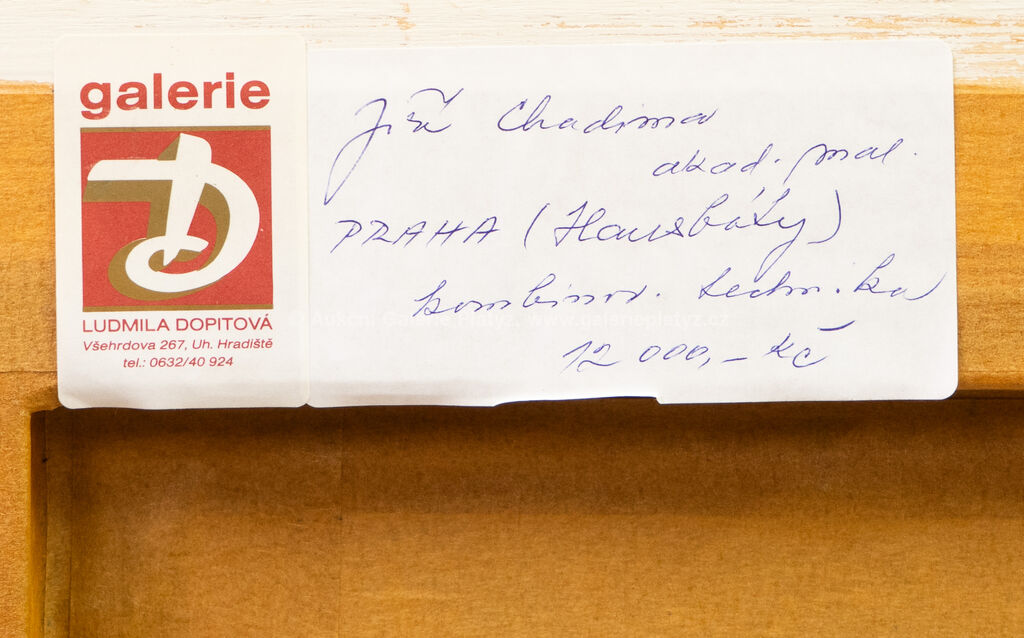 galerie
LUDMILA DOPITOVÁ
Všehrdova 267, Uh. Hradiště
tel.: 0632/40 924
Jiří Chadima
akad. mal.
PRAHA (Hausbóty)
kombinov. technika
12 000,- Kč
© Aukční Galerie Platýz, www.galerieplatyz.cz